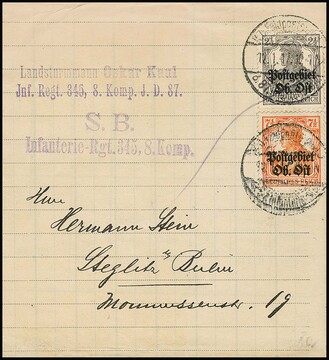 Landsturmmann Oskar Kaul
Inf. Regt. 345, 8. Komp. J. D. 87.
S. B.
Infanterie-Rgt. 345, 8. Komp.
2½
Postgebiet
Ob. Ost
7½
Postgebiet
Ob. Ost
Herrn
Hermann Stein
Steglitz b/ Berlin
Mommsenstr. 19